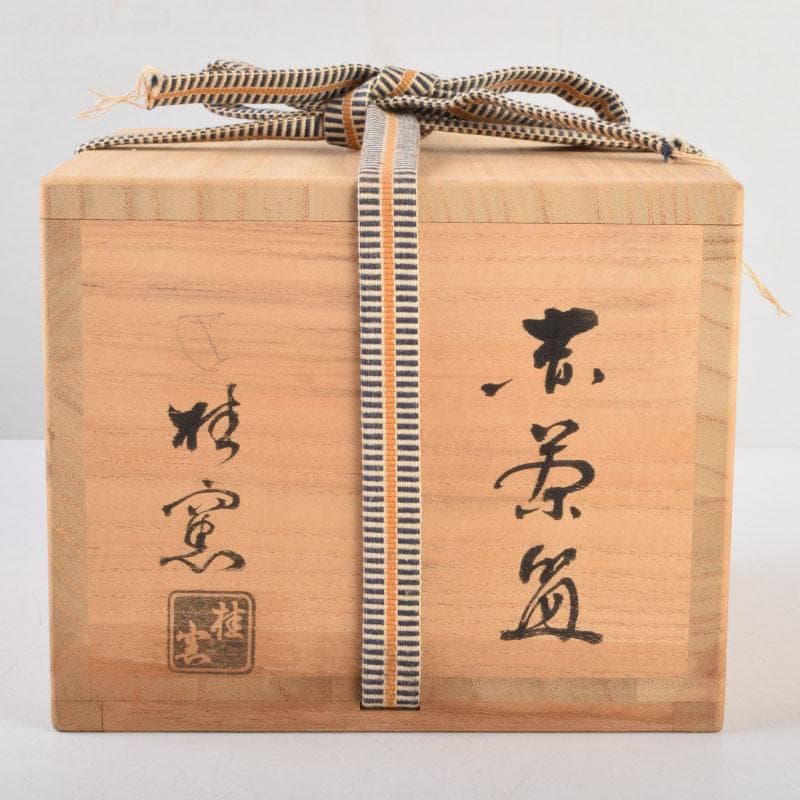 赤茶盌
桂窯
桂窯